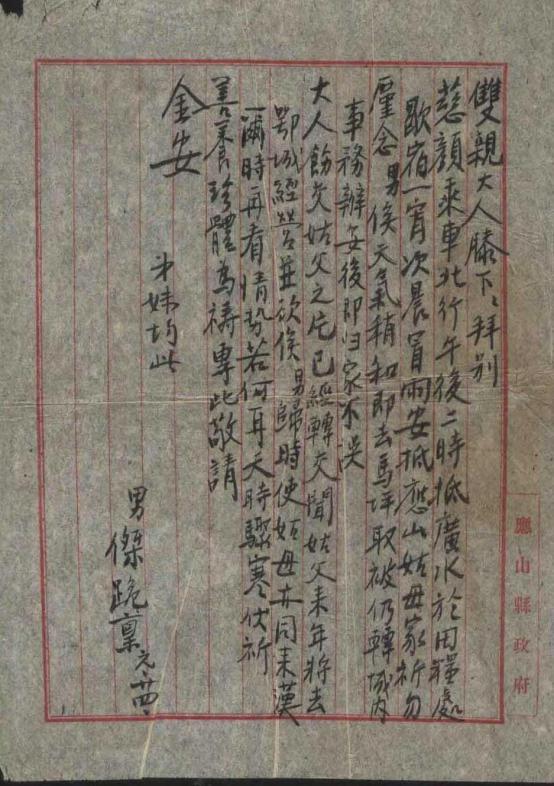 雙親大人膝下、拜別
慈顏乘車北行午後二時抵廣水於田糧處
歇宿一宵次晨冒雨安抵應山姑母家祈勿
廑念男俟天氣稍和即去馬坪取被仍轉城內
事務辦妥後即归家不误
大人飭交姑父之片已經轉交聞姑父来年將去
鄂城經营並欲俟男歸時使姑母亦同来漢
爾時再看情势若何耳天時驟寒伏祈
善養珍體為禱專此敬請
金安
弟妹均此
男傑跪稟元、廿四、
應山縣政府